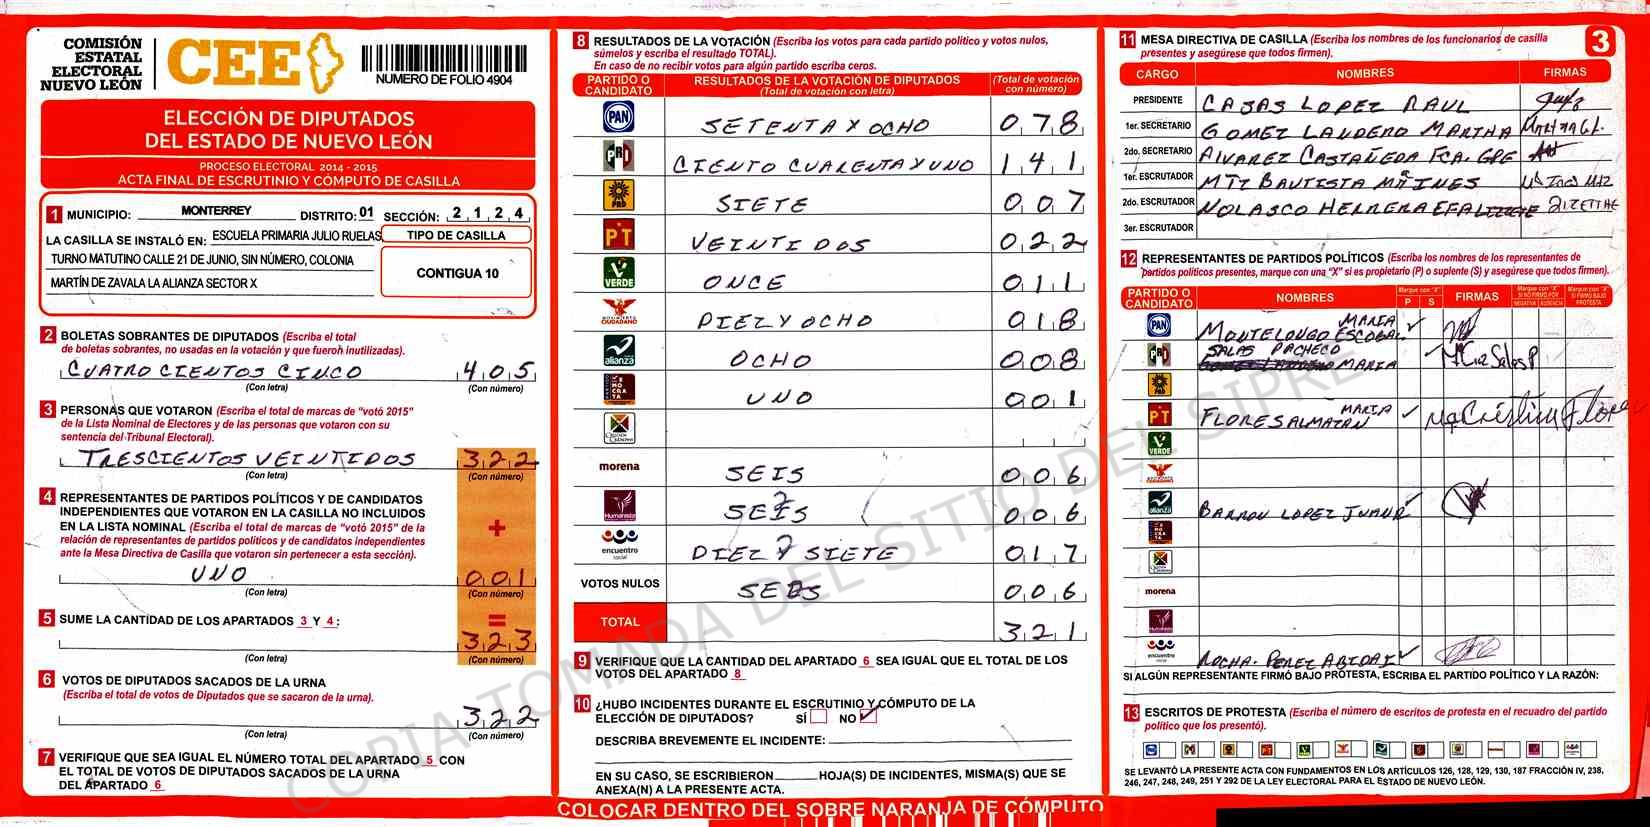 COMISIÓN
ESTATAL
ELECTORAL
NUEVO LEÓN
CEE
NUMERO DE FOLIO 4904
ELECCIÓN DE DIPUTADOS
DEL ESTADO DE NUEVO LEÓN
PROCESO ELECTORAL 2014 - 2015
ACTA FINAL DE ESCRUTINIO Y CÓMPUTO DE CASILLA
1 MUNICIPIO: MONTERREY DISTRITO: 01 SECCIÓN: 2124
LA CASILLA SE INSTALÓ EN: ESCUELA PRIMARIA JULIO RUELAS
TURNO MATUTINO CALLE 21 DE JUNIO, SIN NÚMERO, COLONIA
MARTÍN DE ZAVALA LA ALIANZA SECTOR X
TIPO DE CASILLA
CONTIGUA 10
2 BOLETAS SOBRANTES DE DIPUTADOS (Escriba el total
de boletas sobrantes, no usadas en la votación y que fueron inutilizadas).
CUATROCIENTOS CINCO 405
(Con letra) (Con número)
3 PERSONAS QUE VOTARON (Escriba el total de marcas de "votó 2015"
de la Lista Nominal de Electores y de las personas que votaron con su
sentencia del Tribunal Electoral).
TRESCIENTOS VEINTIDOS 322
(Con letra) (Con número)
4 REPRESENTANTES DE PARTIDOS POLÍTICOS Y DE CANDIDATOS
INDEPENDIENTES QUE VOTARON EN LA CASILLA NO INCLUIDOS
EN LA LISTA NOMINAL (Escriba el total de marcas de "votó 2015" de la
relación de representantes de partidos políticos y de candidatos independientes
ante la Mesa Directiva de Casilla que votaron sin pertenecer a esta sección).
+
UNO 001
(Con letra) (Con número)
5 SUME LA CANTIDAD DE LOS APARTADOS 3 Y 4:
=
323
(Con letra) (Con número)
6 VOTOS DE DIPUTADOS SACADOS DE LA URNA
(Escriba el total de votos de Diputados que se sacaron de la urna).
322
(Con letra) (Con número)
7 VERIFIQUE QUE SEA IGUAL EL NÚMERO TOTAL DEL APARTADO 5 CON
EL TOTAL DE VOTOS DE DIPUTADOS SACADOS DE LA URNA
DEL APARTADO 6
8 RESULTADOS DE LA VOTACIÓN (Escriba los votos para cada partido político y votos nulos,
súmelos y escriba el resultado TOTAL).
En caso de no recibir votos para algún partido escriba ceros.
PARTIDO O CANDIDATO RESULTADOS DE LA VOTACIÓN DE DIPUTADOS (Total de votación con letra) (Total de votación con número)
PAN SETENTA Y OCHO 078
PRI CIENTO CUARENTA Y UNO 141
PRD SIETE 007
PT VEINTIDOS 022
VERDE ONCE 011
MOVIMIENTO CIUDADANO DIEZ Y OCHO 018
alianza OCHO 008
DEMOCRATA UNO 001
morena SEIS 006
Humanista SEIS 006
encuentro social DIEZ Y SIETE 017
VOTOS NULOS SEIS 006
TOTAL 321
9 VERIFIQUE QUE LA CANTIDAD DEL APARTADO 6 SEA IGUAL QUE EL TOTAL DE LOS
VOTOS DEL APARTADO 8
10 ¿HUBO INCIDENTES DURANTE EL ESCRUTINIO Y CÓMPUTO DE LA
ELECCIÓN DE DIPUTADOS? SÍ NO
DESCRIBA BREVEMENTE EL INCIDENTE:
EN SU CASO, SE ESCRIBIERON HOJA(S) DE INCIDENTES, MISMA(S) QUE SE
ANEXA(N) A LA PRESENTE ACTA.
COLOCAR DENTRO DEL SOBRE NARANJA DE CÓMPUTO
11 MESA DIRECTIVA DE CASILLA (Escriba los nombres de los funcionarios de casilla
presentes y asegúrese que todos firmen).
3
CARGO NOMBRES FIRMAS
PRESIDENTE CASAS LOPEZ RAUL
1er. SECRETARIO GOMEZ LANDERO MARTHA
2do. SECRETARIO ALVAREZ CASTAÑEDA FCA. GPE
1er. ESCRUTADOR MTZ BAUTISTA Mª INES
2do. ESCRUTADOR NOLASCO HERRERA
3er. ESCRUTADOR
12 REPRESENTANTES DE PARTIDOS POLÍTICOS (Escriba los nombres de los representantes de
partidos políticos presentes, marque con una "X" si es propietario (P) o suplente (S) y asegúrese que todos firmen).
PARTIDO O CANDIDATO NOMBRES Marque con "X" P S FIRMAS Marque con "X" SI NO FIRMÓ POR NEGATIVA AUSENCIA Marque con "X" SI FIRMÓ BAJO PROTESTA
PAN MONTELONGO ESCOBAR MARIA
PRI SALAS PACHECO MARIA
PRD
PT FLORES ALMATAN MARIA
VERDE
alianza BARRON LOPEZ JUANA
morena
encuentro social ROCHA PEREZ ABIDAI
SI ALGÚN REPRESENTANTE FIRMÓ BAJO PROTESTA, ESCRIBA EL PARTIDO POLÍTICO Y LA RAZÓN:
13 ESCRITOS DE PROTESTA (Escriba el número de escritos de protesta en el recuadro del partido
político que los presentó).
SE LEVANTÓ LA PRESENTE ACTA CON FUNDAMENTOS EN LOS ARTÍCULOS 126, 128, 129, 130, 187 FRACCIÓN IV, 238,
246, 247, 248, 249, 251 Y 292 DE LA LEY ELECTORAL PARA EL ESTADO DE NUEVO LEÓN.
COPIA TOMADA DEL SITIO DEL SIPRE